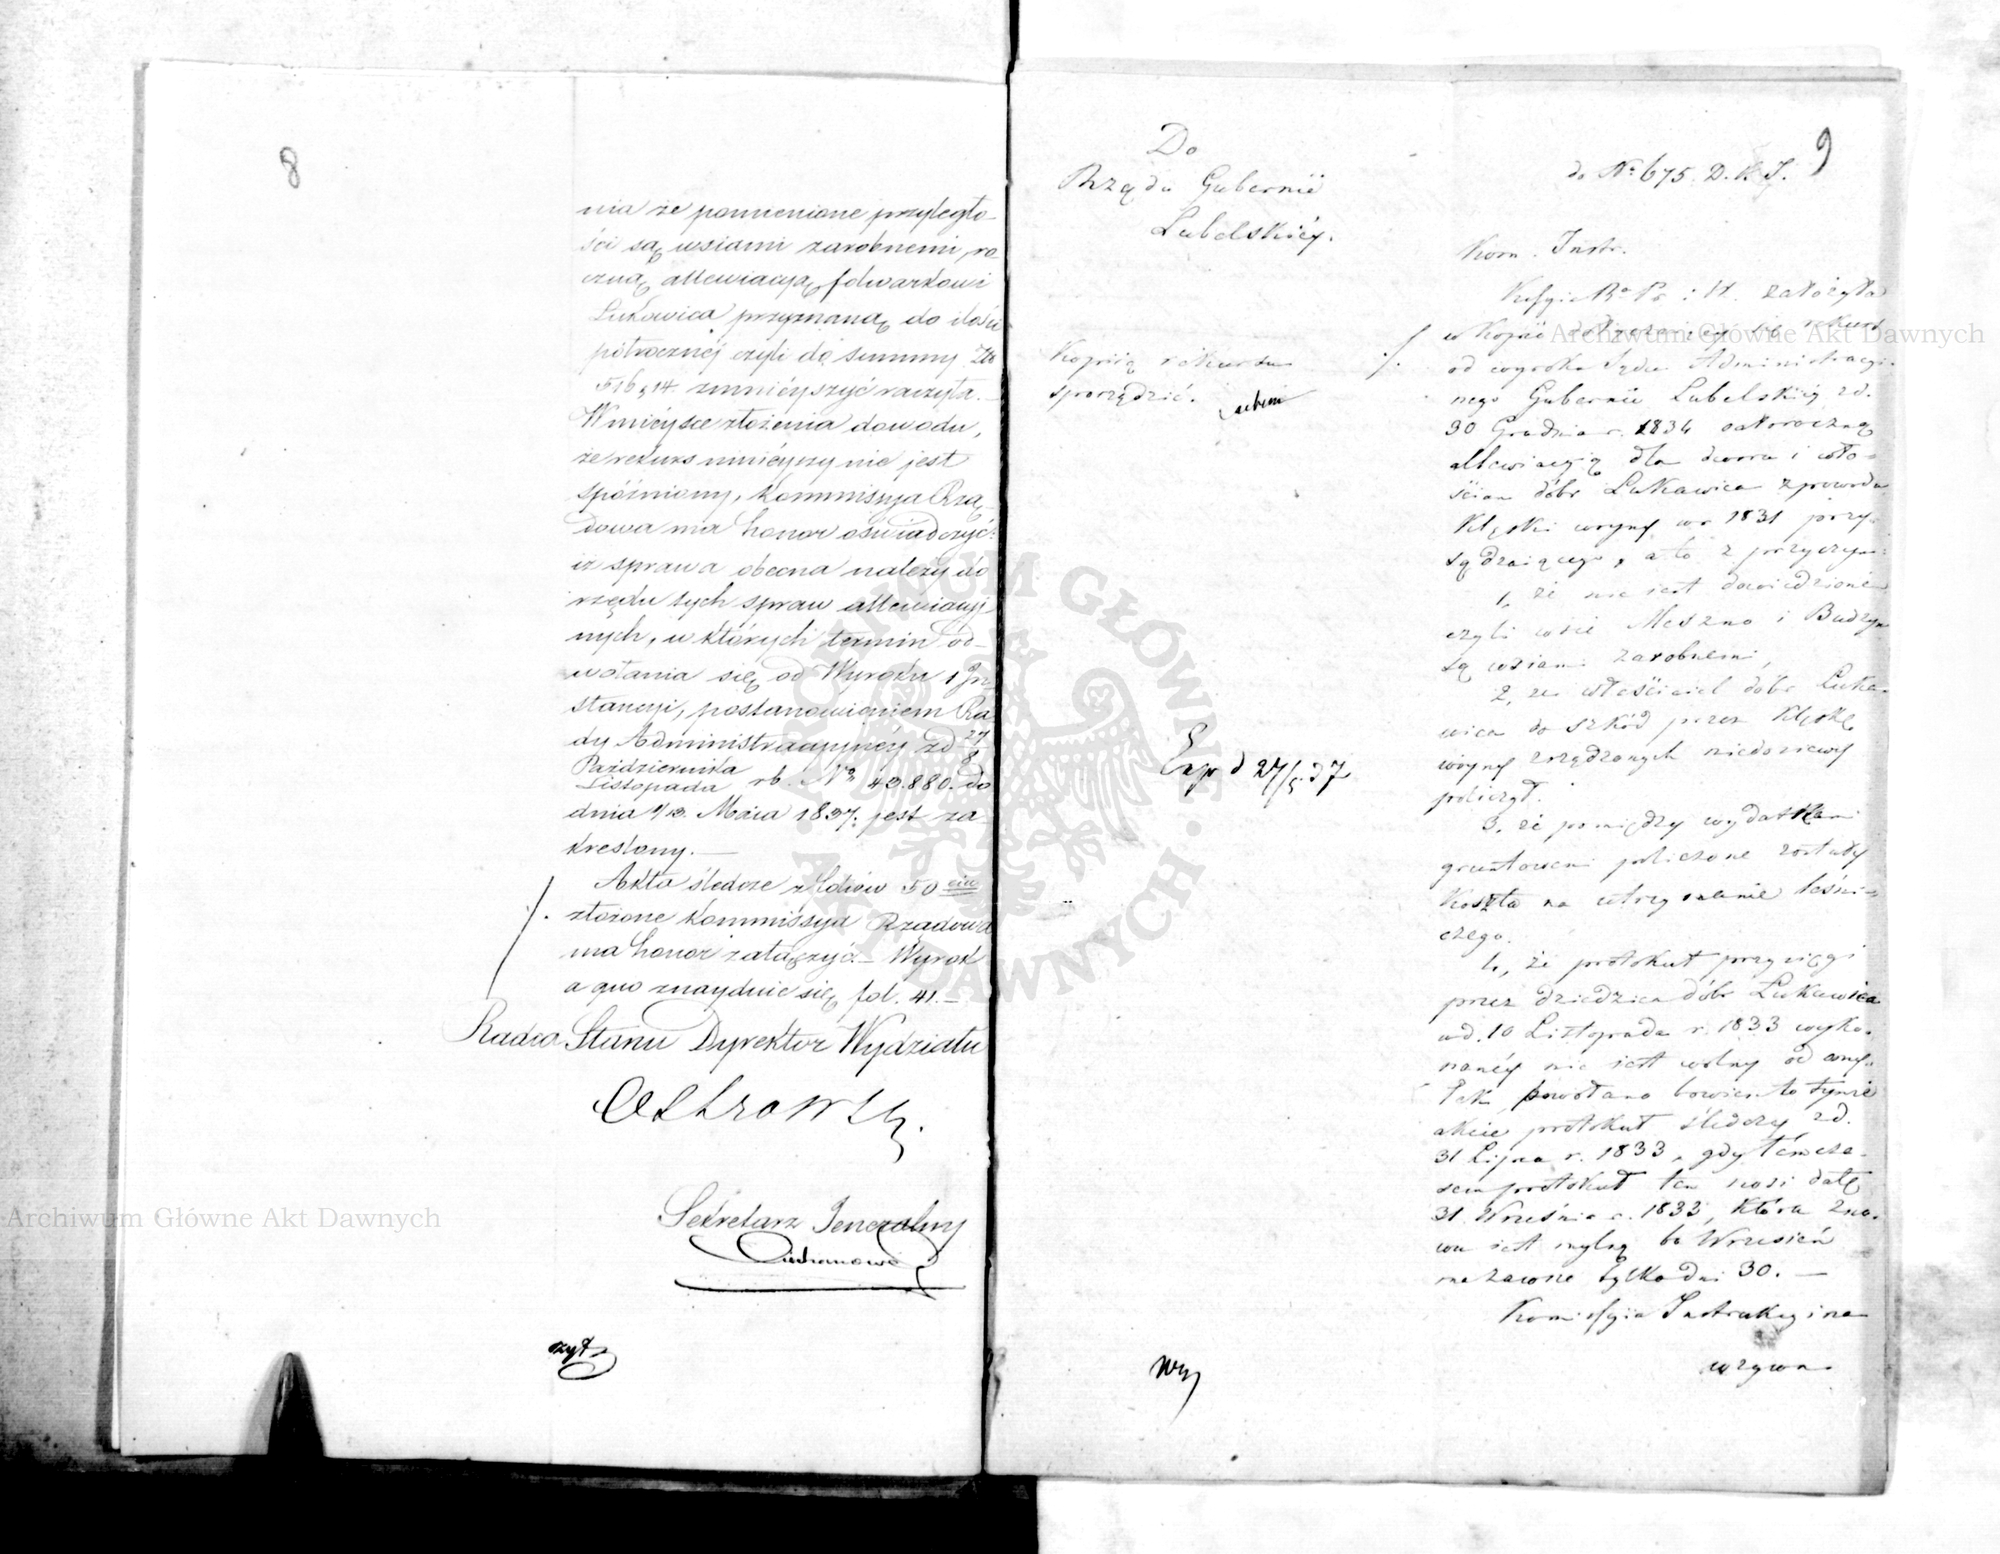 8
nia że pomienione przyległo-
ści są wsiami zarobnemi, ro
czną allewiacyą folwarkowi
Łukowica przyznaną do ilości
półrocznéj czyli do summy Złp
516 g 14. zmniéyszyć raczyła.
W miéysce złożenia dowodu,
że rekurs ninieyszy nie jest
spóźniony, Kommissyja Rzą-
dowa ma honor oświadczyć:
iż sprawa obecna należy do
rzędu tych spraw allewiacyj
nych, w których termin od-
wołania się od Wyroku 1 In
stancyi, postanowieniem Ra
dy Administracyjnéy zd 27/8
Października
Listopada rb. No 43.880. do
dnia 1/13. Maia 1837. jest za-
kreślony.—
Akta śledcze z listów 50 ciu
złożone Kommissyja Rządowa
ma honor załączyć.— Wyrok
a quo znayduie się fol. 41.—
Radca Stanu Dyrektor Wydziału
Sekretarz Jeneralny
czyt
Do
Rządu Gubernii
Lubelskiéy.
Kopiią rekursu
sporządzić.
Exp d 27/5 d 7
9
do No 675. D. K. I.
Kom. Instr.
Kssyia Ro Pr i S. założyła
w kopii rekurs
od wyroku Sądu Administracyi-
nego Gubernii Lubelskiéy zd.
30 Grudnia r. 1834 całoroczną
allewiacyią dla dworu i wło-
ścian dóbr Lukawica z powodu
Klęski woyny w r 1831 przy-
sądzaiącego, a to z przyczyn:
1, że nie jest dowiedzione
czyli wsie Meszno i Budzyn
są wsiami zarobnemi,
2, że właściciel dóbr Luka-
wica do szkód przez klęskę
woyny zrządzonych niedoziewy
policzył.
3, że pomiędzy wydatkami
gruntowemi policzone zostały
Koszta na utrzymanie leśni-
czego.
4, że protokuł przysięgi
przez dziedzica dóbr Lukawica
w d. 10 Listopada r. 1833 wyko-
nanéy nie jest wolny od omy-
łek, powołano bowiem w tymże
akcie protokuł śledczy zd.
31 Lipca r. 1833, gdy tymcza-
sem protokuł ten nosi datę
31 Września r. 1833, która zno-
wu jest mylną bo Wrzesień
ma zawsze tylko dni 30.—
Komissyia Instrukcyina
wzywa
Archiwum Główne Akt Dawnych
Archiwum Główne Akt Dawnych
ARCHIWUM GŁÓWNE · AKT DAWNYCH ·